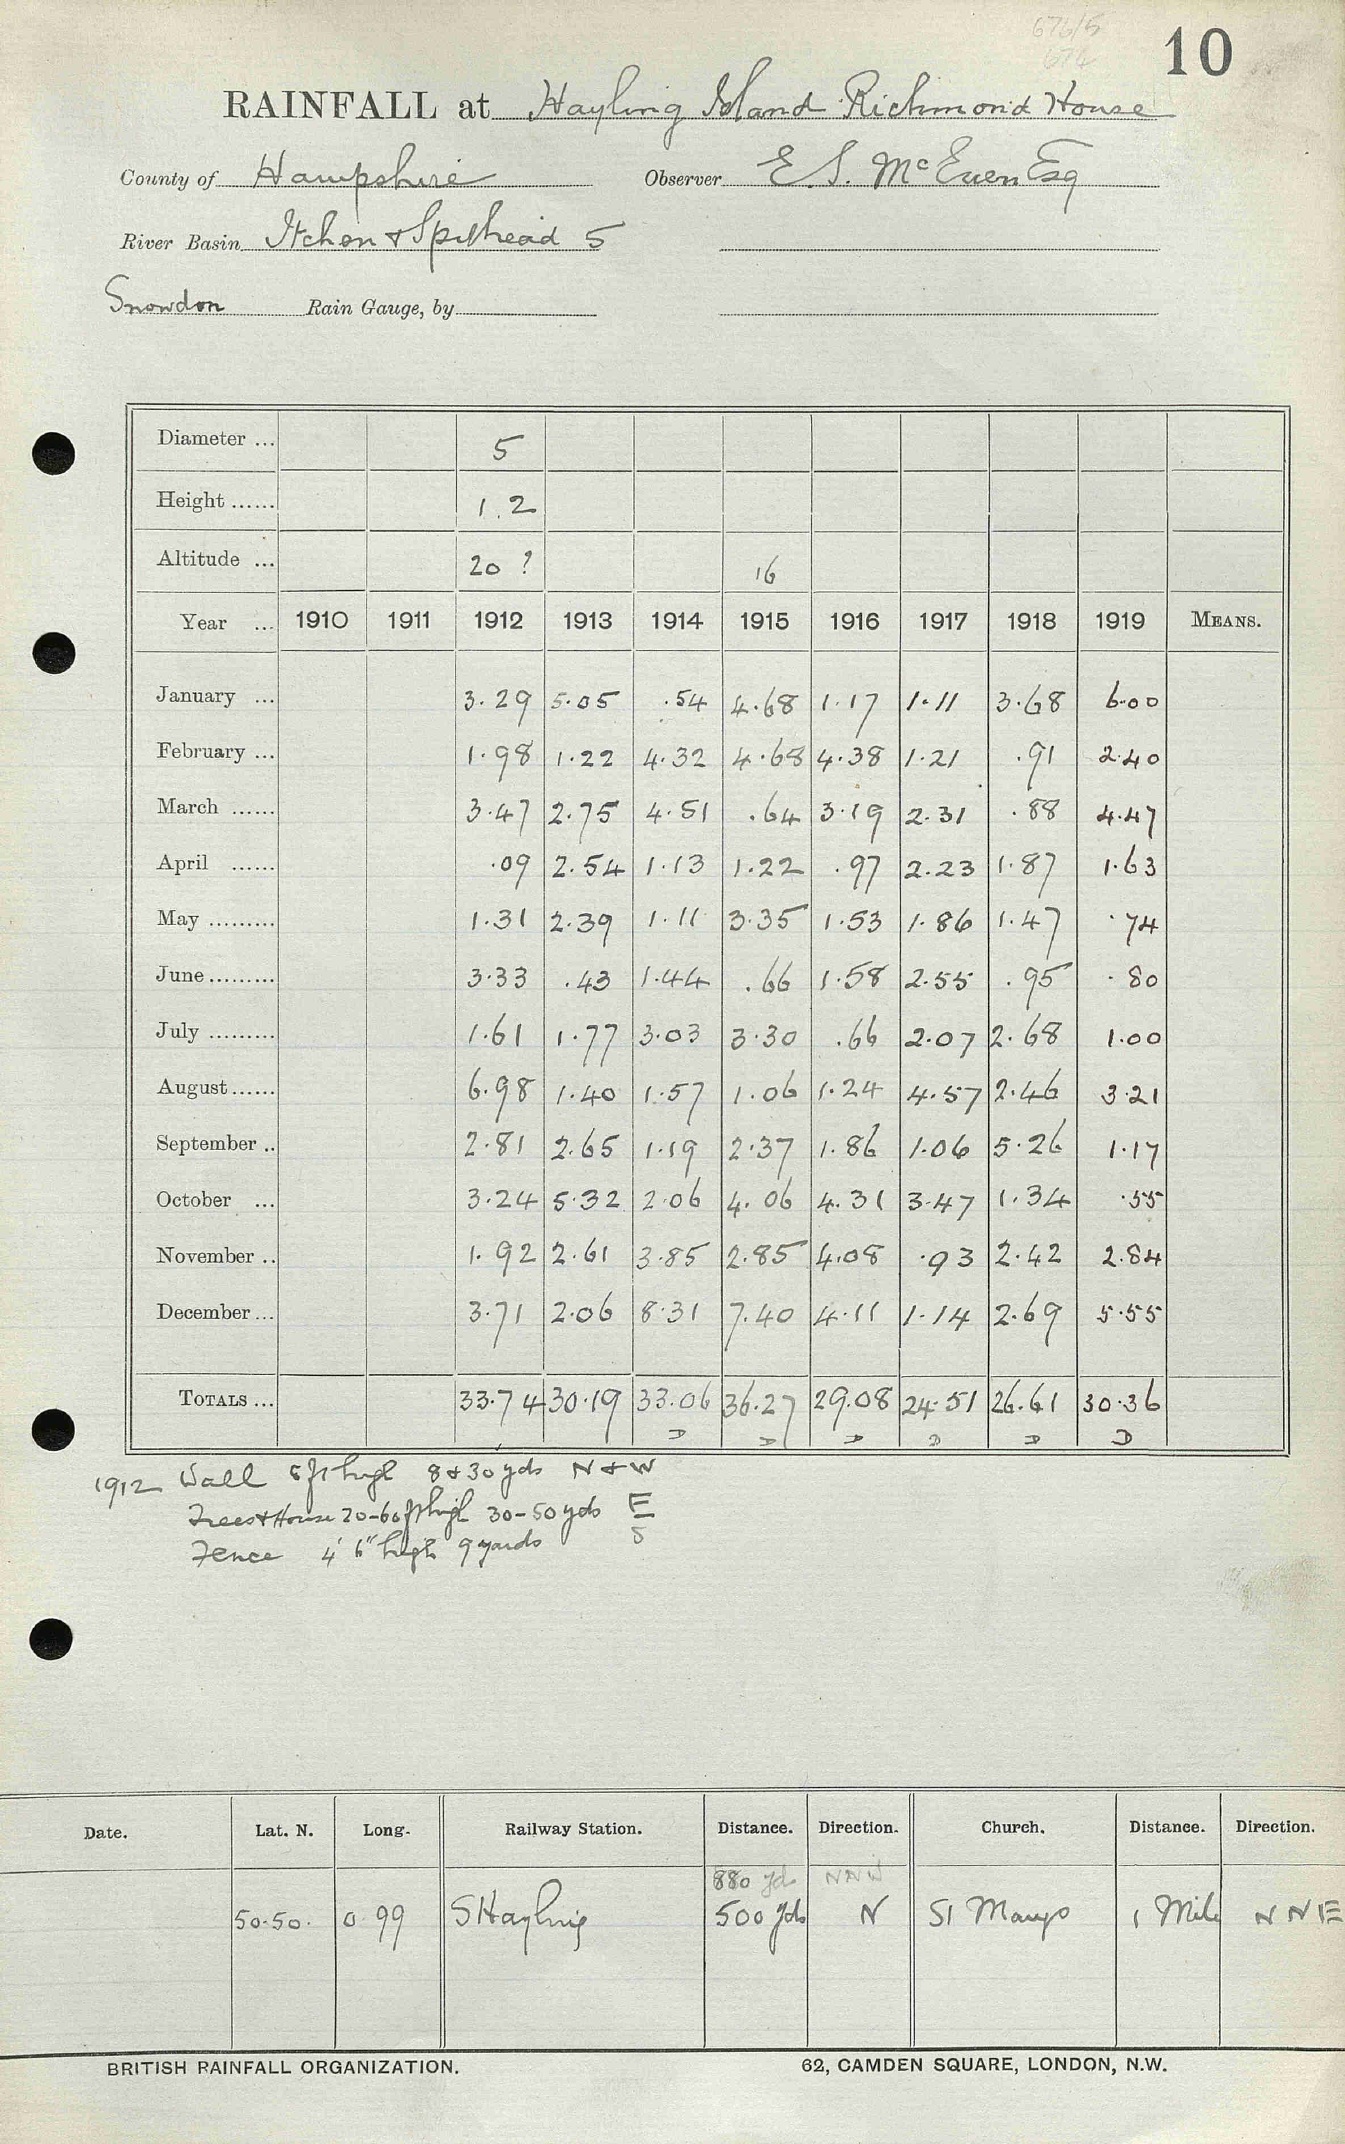 676/5
674
10
RAINFALL at Hayling Island Richmond House
County of Hampshire Observer E. S. McEuen Esq
River Basin Itchen & Spithead 5
Snowdon Rain Gauge, by
Diameter ... 5
Height ...... 1.2
Altitude ... 20 ? 16
Year ... 1910 1911 1912 1913 1914 1915 1916 1917 1918 1919 MEANS.
January ... 3.29 5.05 .54 4.68 1.17 1.11 3.68 6.00
February ... 1.98 1.22 4.32 4.68 4.38 1.21 .91 2.40
March ...... 3.47 2.75 4.51 .64 3.19 2.31 .88 4.47
April ...... .09 2.54 1.13 1.22 .97 2.23 1.87 1.63
May ......... 1.31 2.39 1.11 3.35 1.53 1.86 1.47 .74
June ......... 3.33 .43 1.44 .66 1.58 2.55 .95 .80
July ......... 1.61 1.77 3.03 3.30 .66 2.07 2.68 1.00
August ...... 6.98 1.40 1.57 1.06 1.24 4.57 2.46 3.21
September .. 2.81 2.65 1.19 2.37 1.86 1.06 5.26 1.17
October ... 3.24 5.32 2.06 4.06 4.31 3.47 1.34 .55
November .. 1.92 2.61 3.85 2.85 4.08 .93 2.42 2.84
December ... 3.71 2.06 8.31 7.40 4.11 1.14 2.69 5.55
TOTALS ... 33.74 30.19 33.06 36.27 29.08 24.51 26.61 30.36
D D D D D D
1912 Wall 6 ft high 8 & 30 yds N & W
Trees & House 20-60 ft high 30-50 yds E
Fence 4' 6" high 9 yards S
Date. Lat. N. Long. Railway Station. Distance. Direction. Church. Distance. Direction.
880 yds NNW
50.50. 0 99 S Hayling 500 yds N St Marys 1 Mile NNE
BRITISH RAINFALL ORGANIZATION. 62, CAMDEN SQUARE, LONDON, N.W.